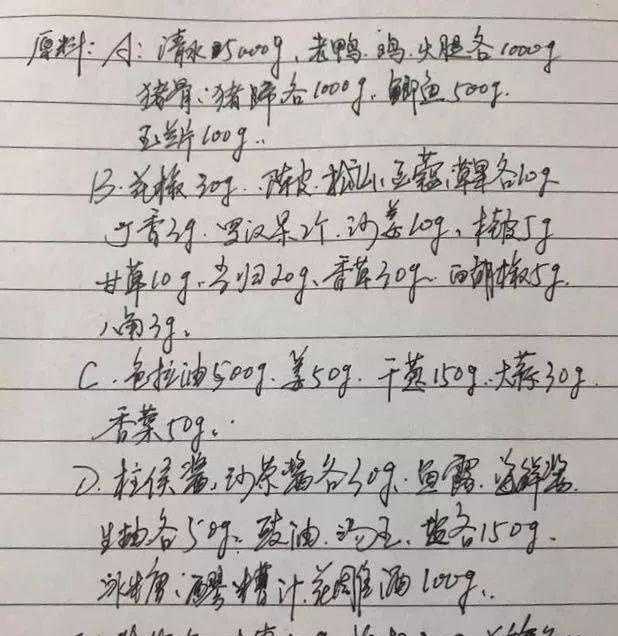 原料: A: 清水15000g、老鸭、鸡、火腿各1000g
猪骨、猪蹄各1000g、鲫鱼500g、
玉兰片100g、
B. 花椒30g、陈皮、豆蔻、草果各10g
丁香3g、罗汉果2个、沙姜10g、桂皮5g
甘草10g、当归20g、香草30g、白胡椒5g、
八角3g、
C. 色拉油500g、姜50g、干葱150g、大蒜30g、
香菜50g、
D. 柱侯酱、沙茶酱各30g、鱼露、海鲜酱
生抽各50g、豉油、盐各150g、
冰糖、醪糟汁、花雕酒100g、